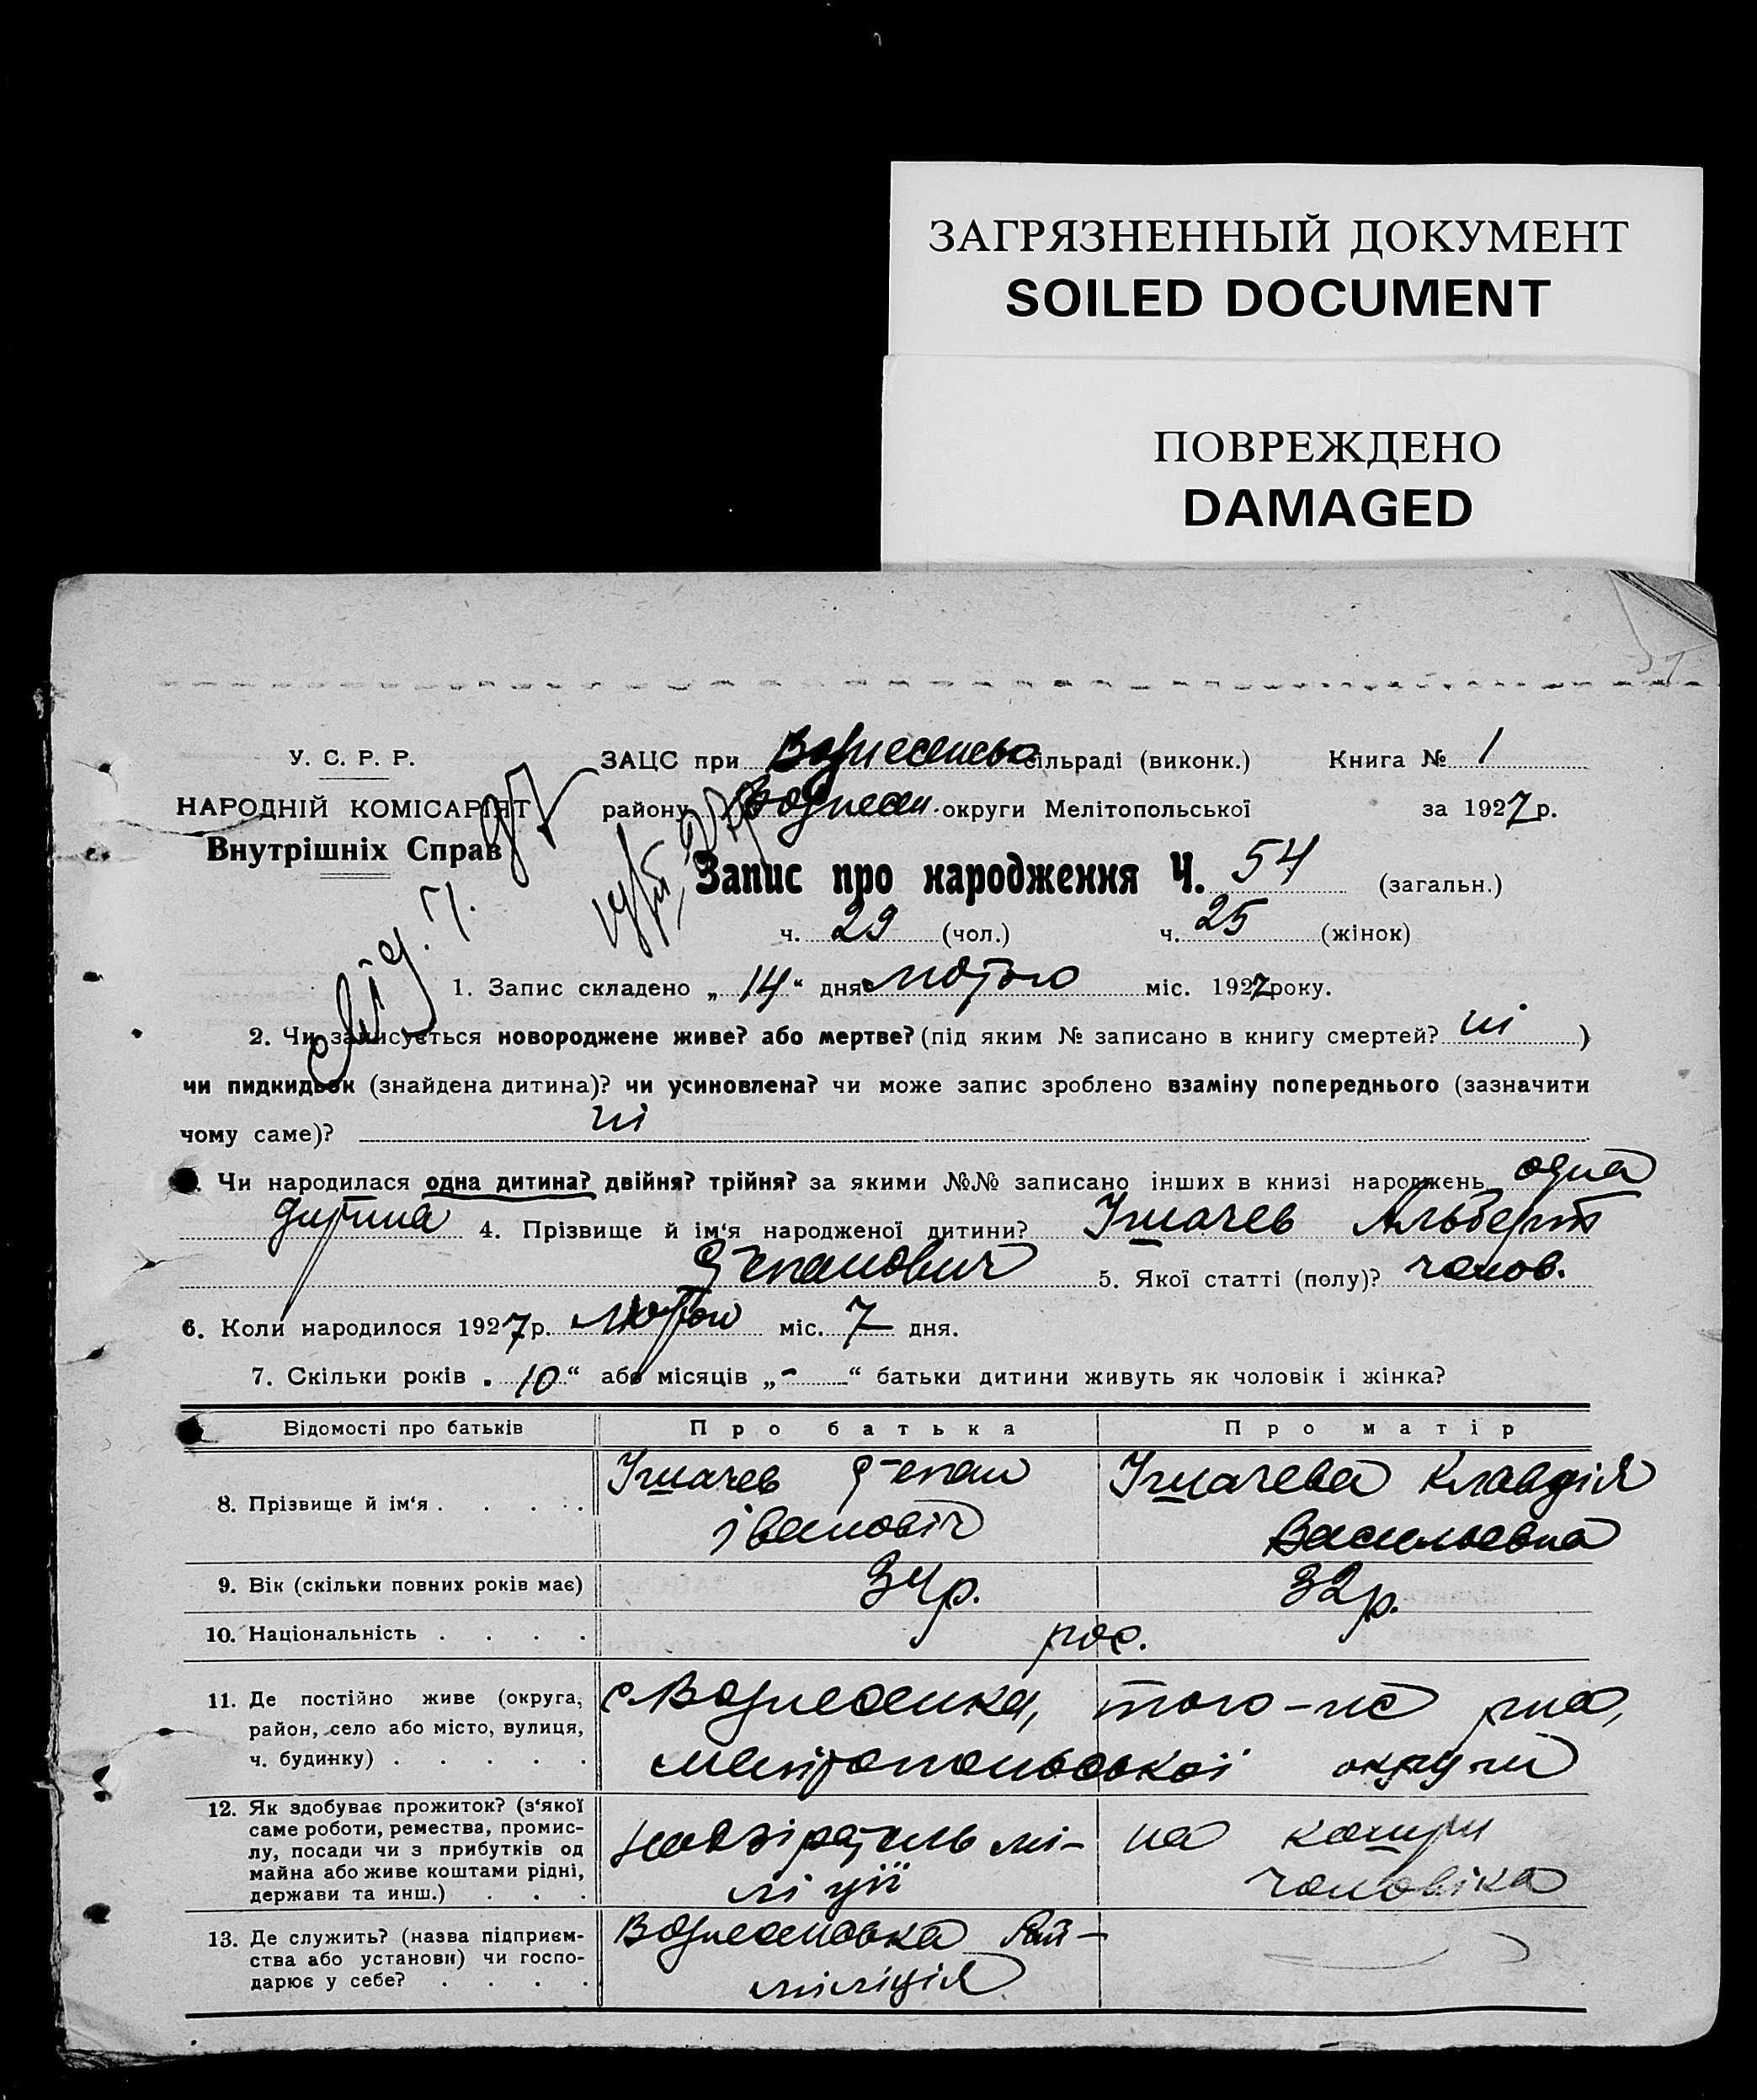 ЗАГРЯЗНЕННЫЙ ДОКУМЕНТ
SOILED DOCUMENT
ПОВРЕЖДЕНО
DAMAGED
У. С. Р. Р.
НАРОДНІЙ КОМІСАРІЯТ
Внутрішніх Справ
ЗАЦС при Вознесенськ сільраді (виконк.) Книга № 1
району Вознесен округи Мелітопольської за 1927 р.
Запис про народження Ч. 54 (загальн.)
ч. 29 (чол.) ч. 25 (жінок)
1. Запис складено „ 14 “ дня лютого міс. 1927 року.
2. Чи записується новороджене живе? або мертве? (під яким № записано в книгу смертей? ні )
чи пидкидьок (знайдена дитина)? чи усиновлена? чи може запис зроблено взаміну попереднього (зазначити
чому саме)? ні
Чи народилася одна дитина? двійня? трійня? за якими №№ записано інших в книзі народжень одна
дитина 4. Прізвище й ім‘я народженої дитини? Ігначев Альберт
Степанович 5. Якої статті (полу)? чолов.
6. Коли народилося 1927 р. лютого міс. 7 дня.
7. Скільки років „ 10 “ або місяців „ - “ батьки дитини живуть як чоловік і жінка?
Відомості про батьків Про батька Про матір
8. Прізвище й ім‘я . . . . Ігначев Степан Ігначева Клавдія
Івановіч Васильевна
9. Вік (скільки повних років має) 34 р. 32 р.
10. Національність . . . . рос.
11. Де постійно живе (округа,
район, село або місто, вулиця,
ч. будинку) . . . . .
с Вознесенка, того-же р-на,
мелітопольської округи
12. Як здобуває прожиток? (з‘якої
саме роботи, ремества, промис-
лу, посади чи з прибутків од
майна або живе коштами рідні,
держави та инш.) . . .
надзіратель мі-
ліції
на кошти
чоловіка
13. Де служить? (назва підприєм-
ства або установи) чи госпо-
дарює у себе? . . . .
Вознесенська Рай-
міліція